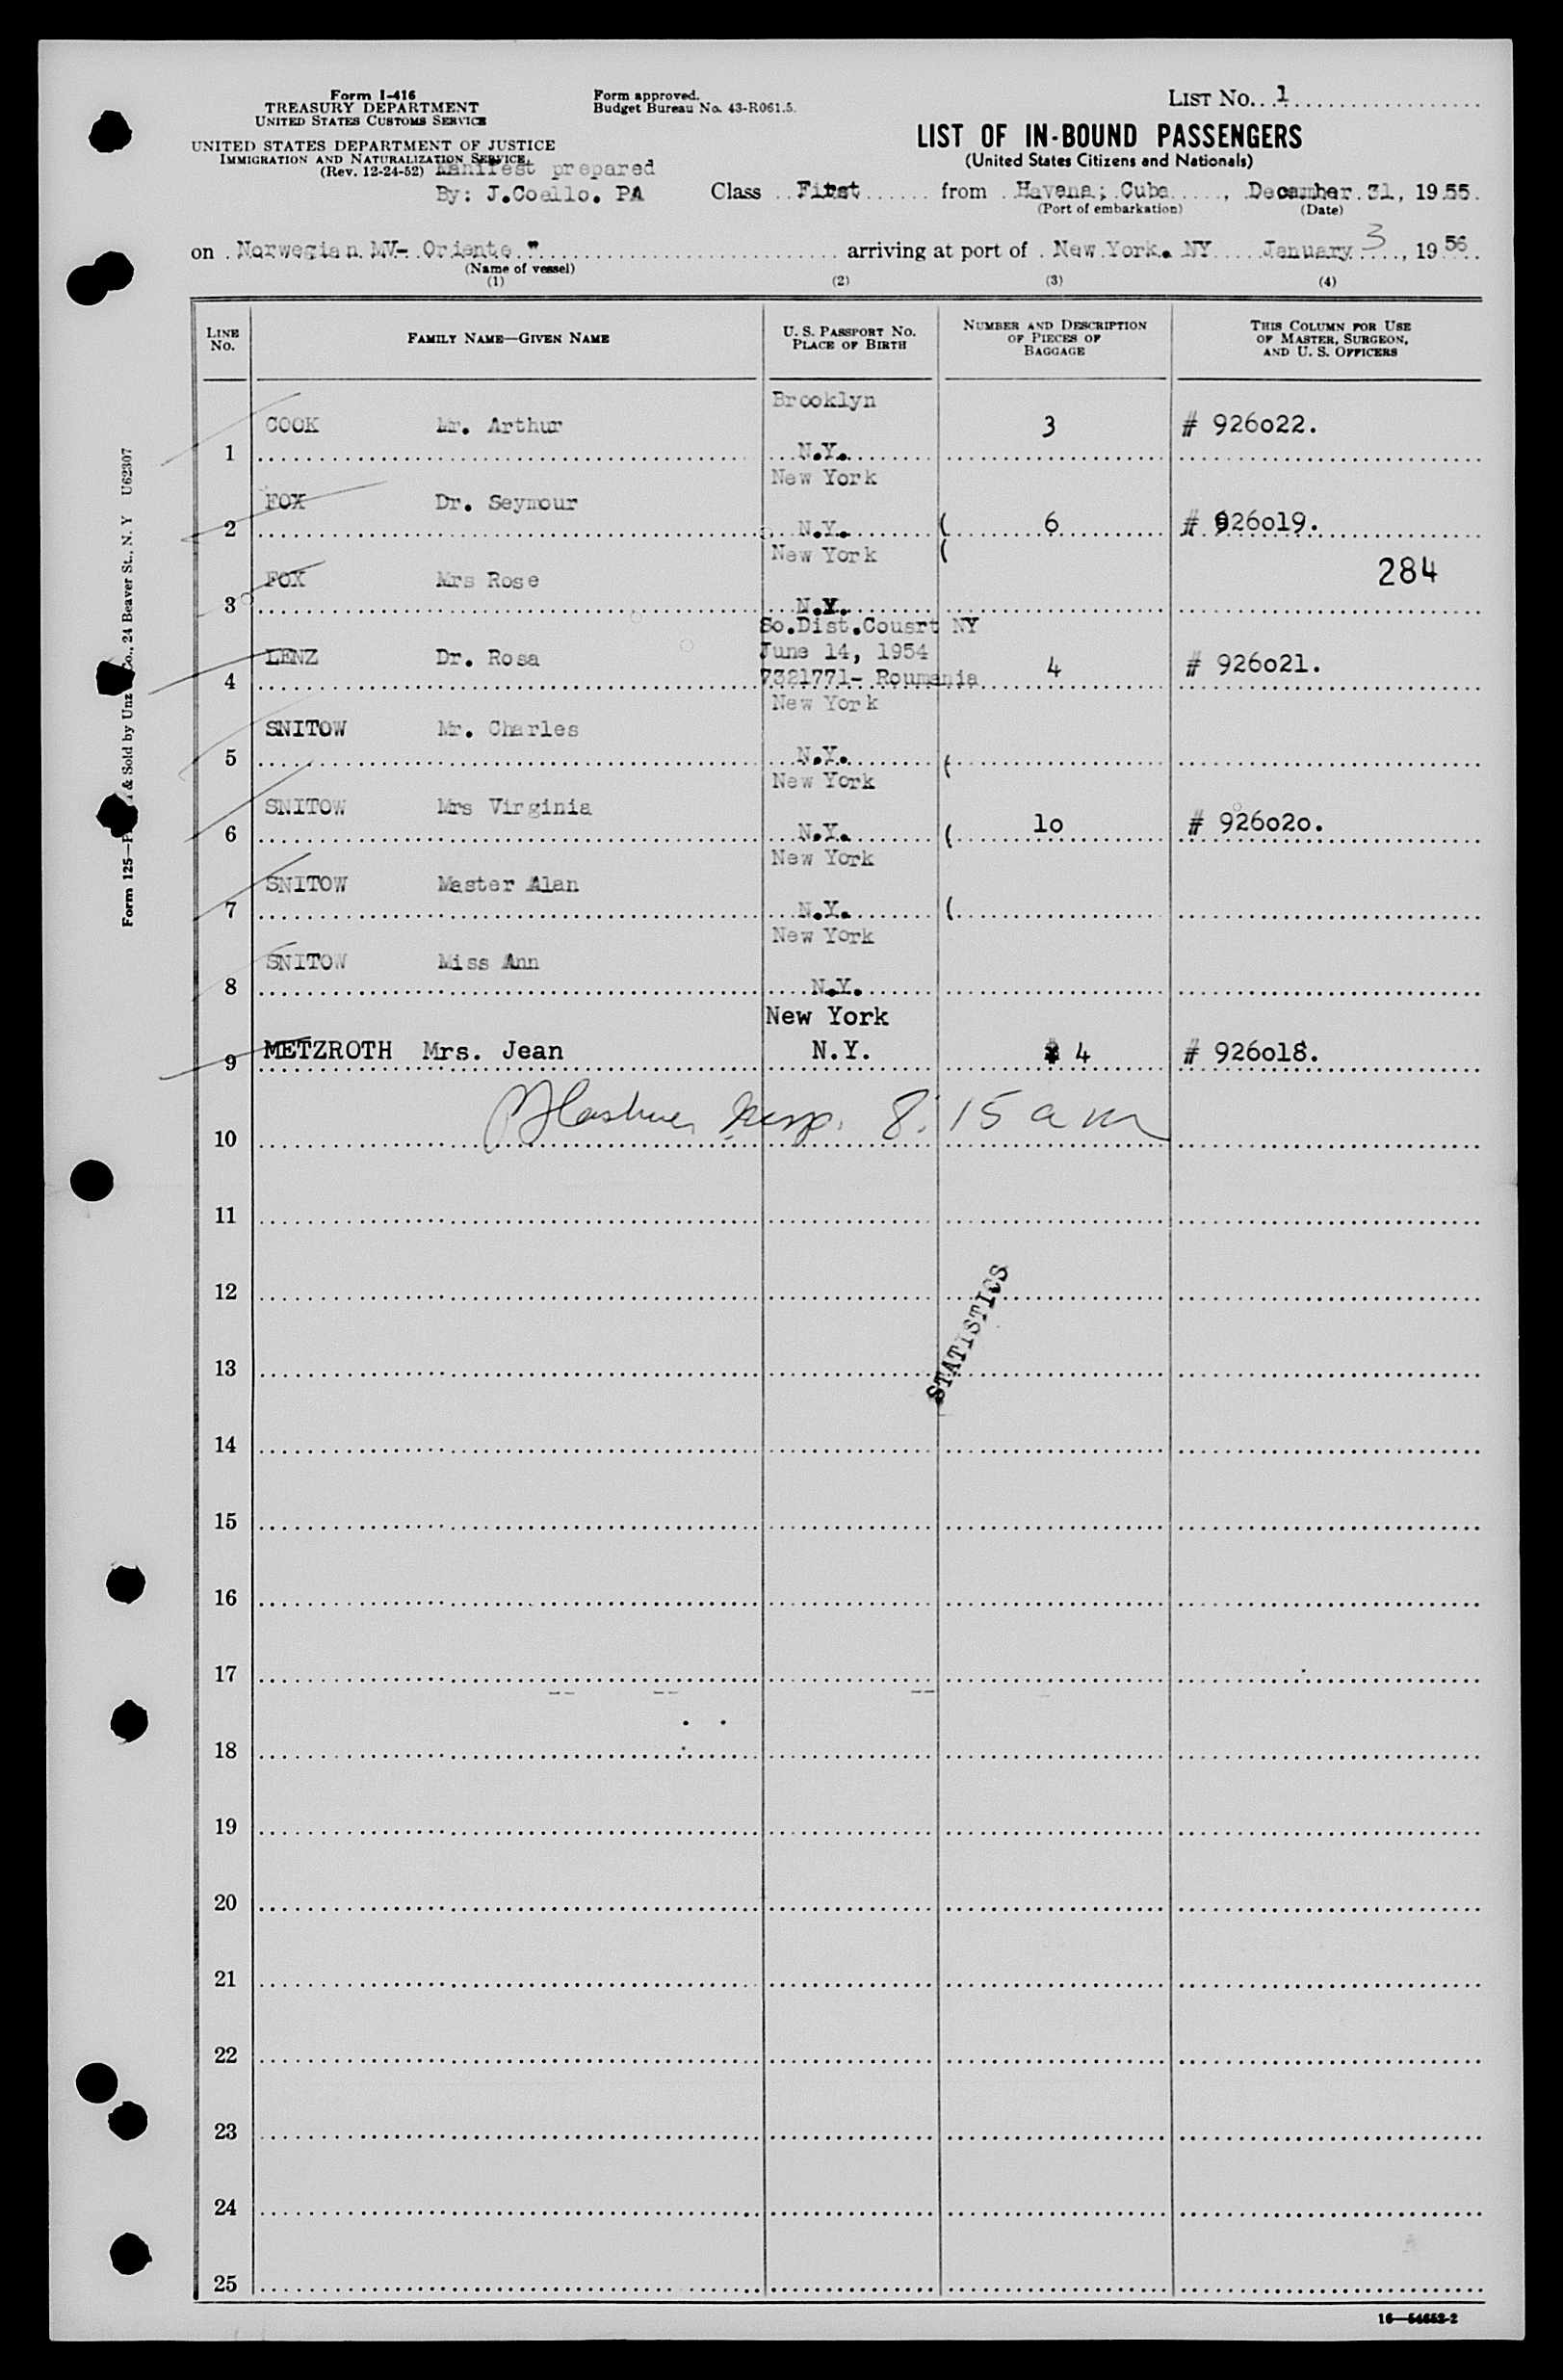 Form I-416
TREASURY DEPARTMENT
UNITED STATES CUSTOMS SERVICE
UNITED STATES DEPARTMENT OF JUSTICE
IMMIGRATION AND NATURALIZATION SERVICE
(Rev. 12-24-52) Manifest prepared
By: J.Coello. PA
Form approved.
Budget Bureau No. 43-R061.5.
LIST No. 1
LIST OF IN-BOUND PASSENGERS
(United States Citizens and Nationals)
Class First from Havana; Cuba, December 31, 1955.
(Port of embarkation) (Date)
on Norwegian MV- Oriente " arriving at port of New York. NY January 3, 1956
(Name of vessel)
(1) (2) (3) (4)
LINE No. FAMILY NAME—GIVEN NAME U. S. PASSPORT NO. PLACE OF BIRTH NUMBER AND DESCRIPTION OF PIECES OF BAGGAGE THIS COLUMN FOR USE OF MASTER, SURGEON, AND U. S. OFFICERS
Brooklyn
COOK Mr. Arthur 3 # 926o22.
1 N.Y.
New York
FOX Dr. Seymour
2 N.Y. ( 6 # 926o19.
New York (
FOX Mrs Rose 284
3 N.Y.
So.Dist.Cousrt NY
June 14, 1954
LENZ Dr. Rosa 4 # 926o21.
4 7321771- Roumania
New York
SNITOW Mr. Charles
5 N.Y. (
New York
SNITOW Mrs Virginia
6 N.Y. ( 1o # 926o2o.
New York
SNITOW Master Alan
7 N.Y. (
New York
SNITOW Miss Ann
8 N.Y.
New York
9 METZROTH Mrs. Jean N.Y. 4 # 926o18.
8:15 am
10
11
12
STATISTICS
13
14
15
16
17
18
19
20
21
22
23
24
25
16—54652-2
Form 125—P & Sold by Unz Co., 24 Beaver St., N. Y U62307